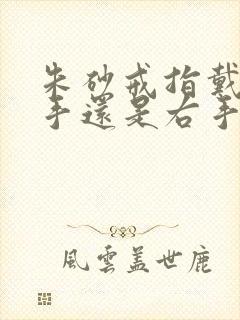 朱砂戒指戴
手還是右手
風雲蓋世鹿